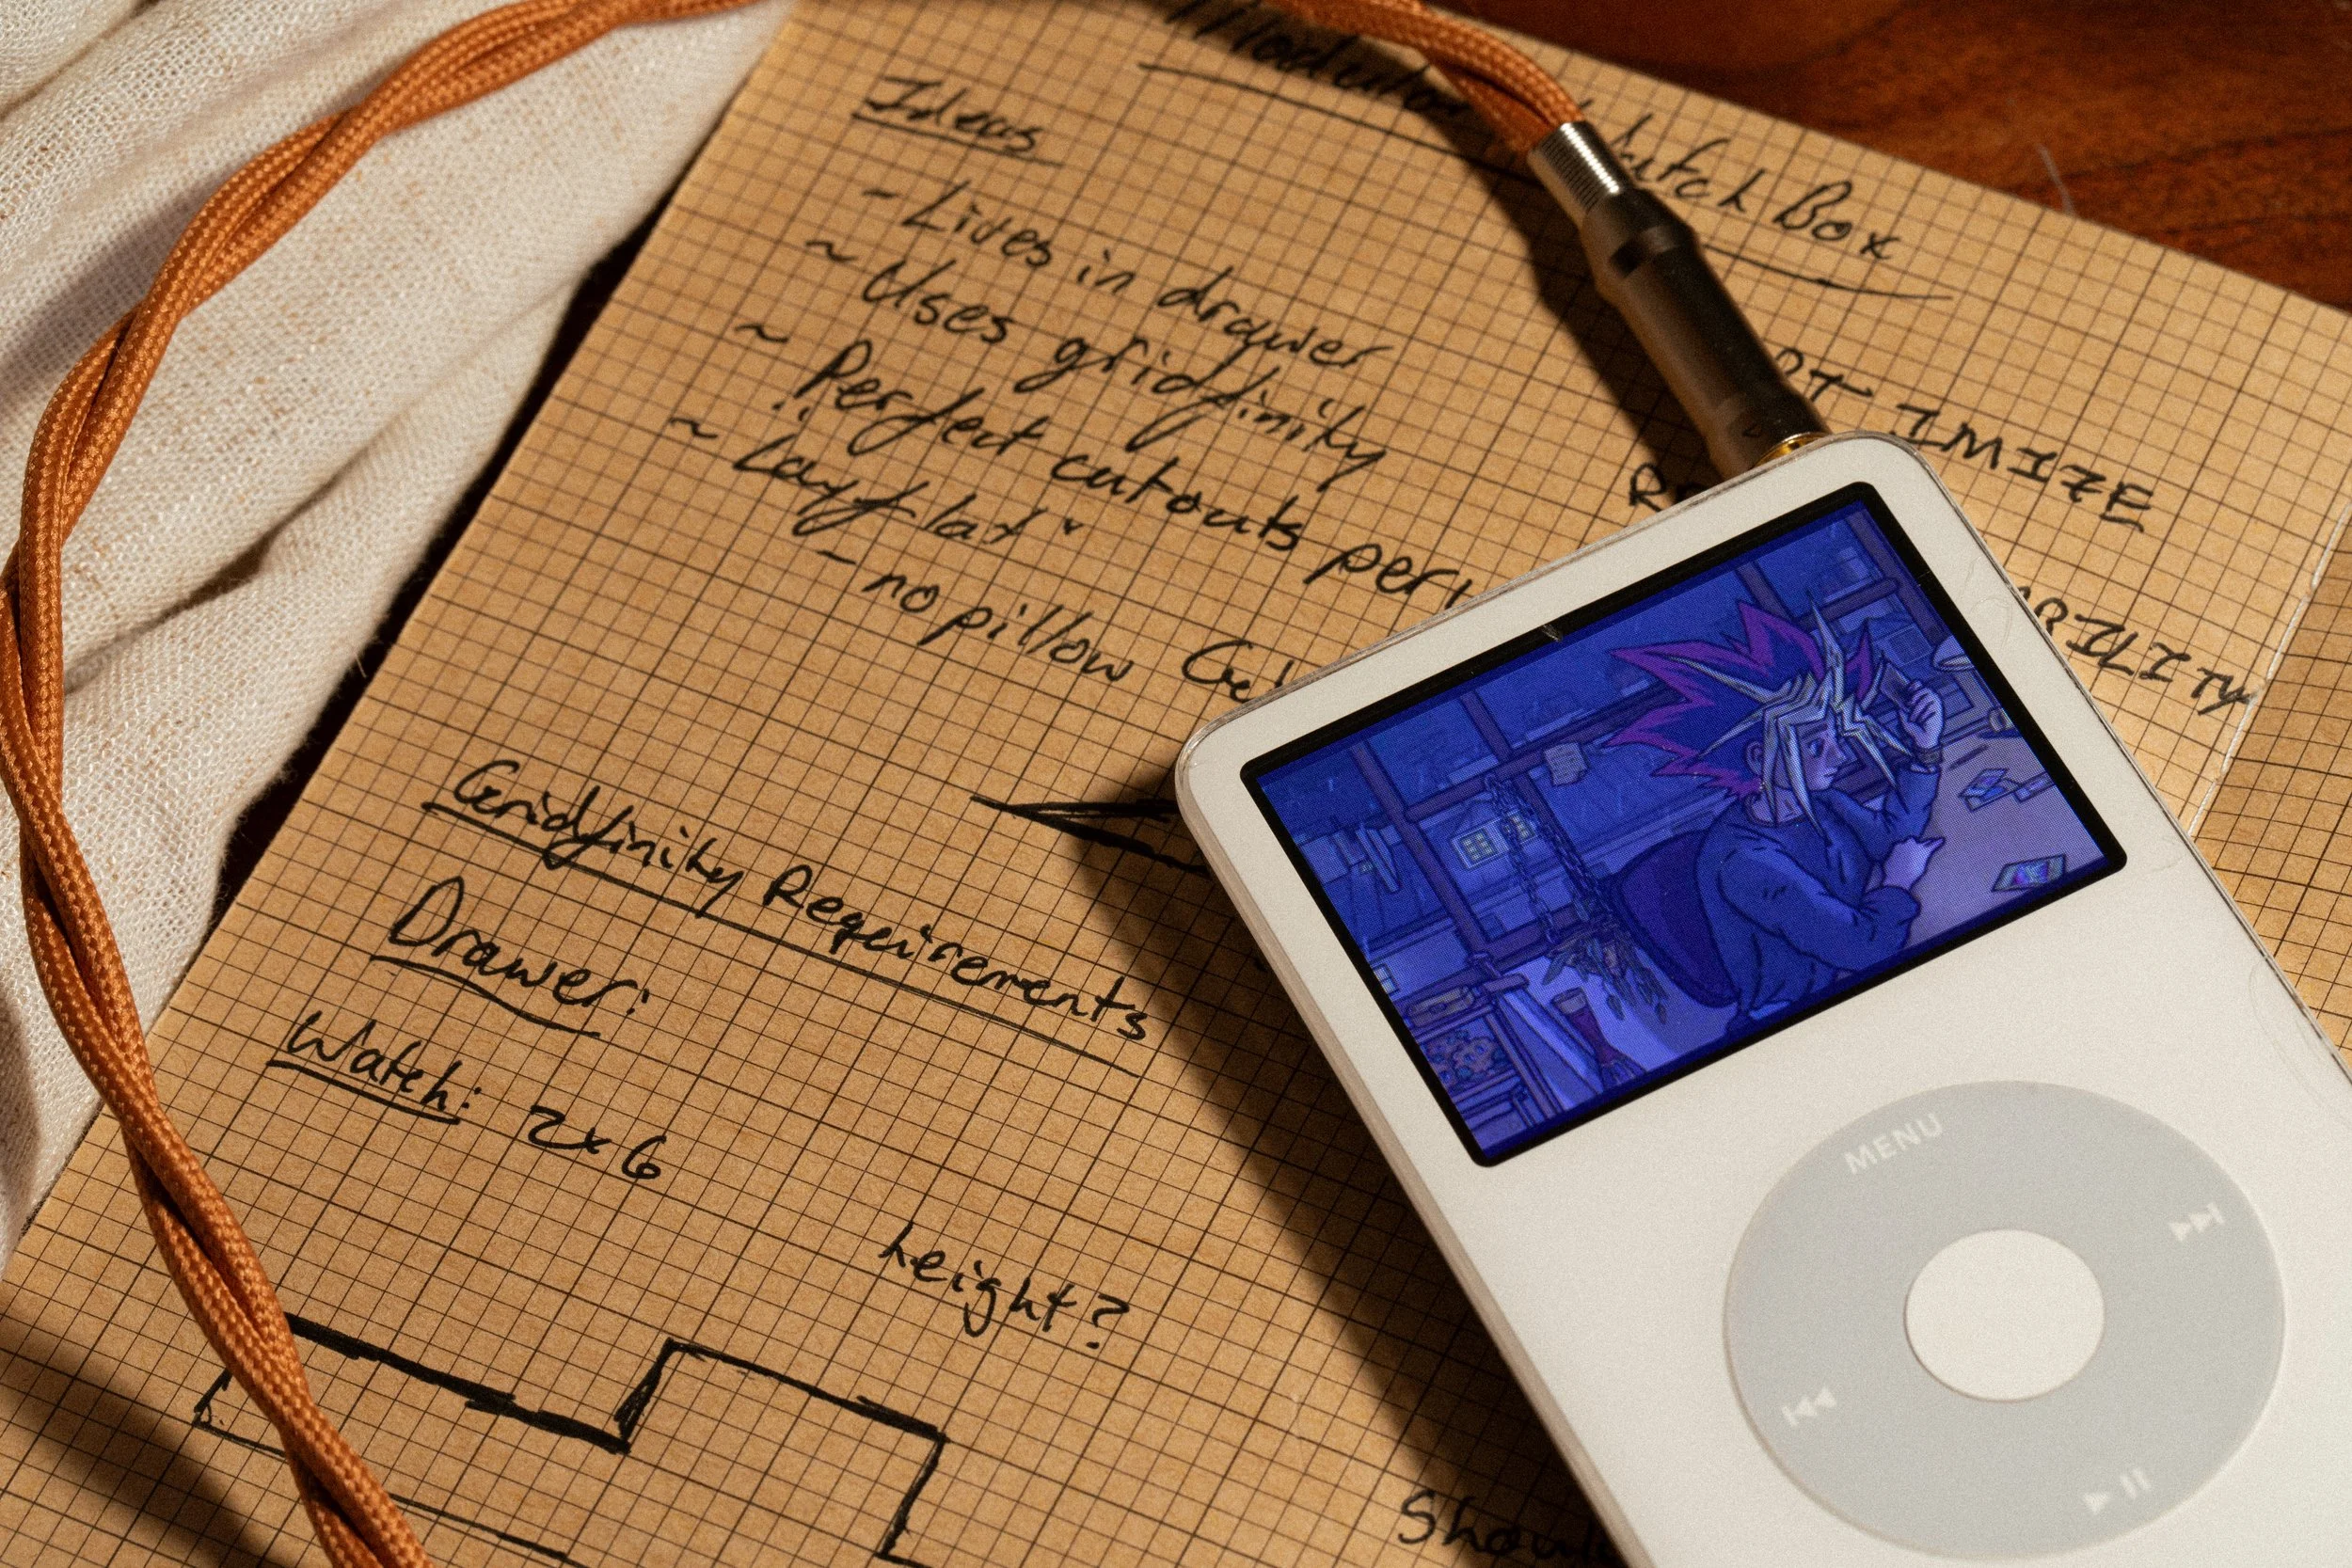 Modular Watch Box
Ideas
- Lives in drawer
~ Uses gridfinity
~ Perfect cutouts per
~ Layflat
- no pillow
OPTIMIZE
Gridfinity Requirements
Drawer:
Watch: 2x6
height?
MENU